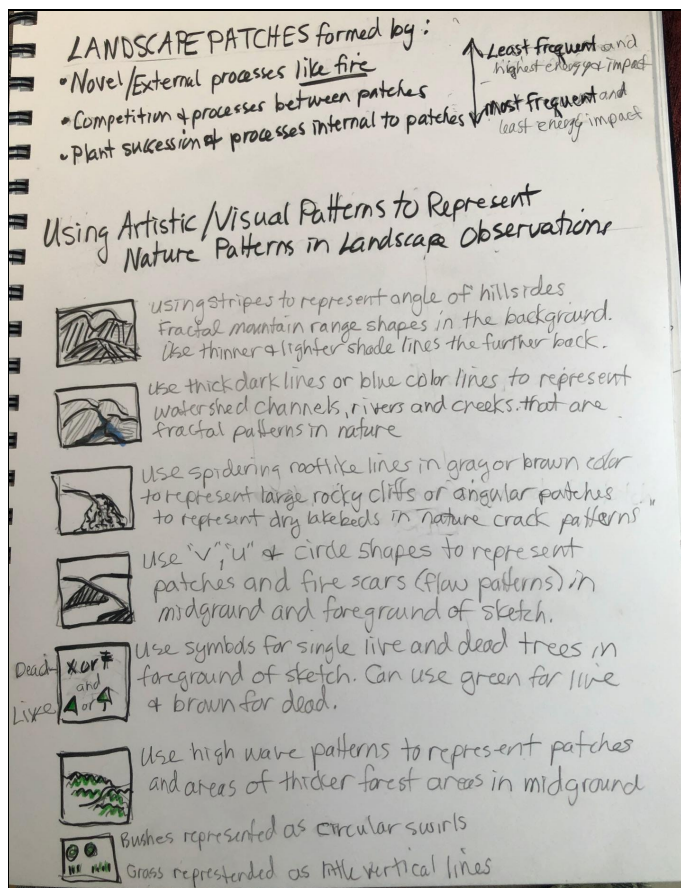 LANDSCAPE PATCHES formed by:
• Novel/External processes like fire
• Competition & processes between patches
• Plant succession & processes internal to patches
Least frequent and
highest energy & impact
most frequent and
least energy impact
Using Artistic/Visual Patterns to Represent
Nature Patterns in Landscape Observations
using stripes to represent angle of hillsides
Fractal mountain range shapes in the background.
Use thinner & lighter shade lines the further back.
use thick dark lines or blue color lines to represent
watershed channels, rivers and creeks that are
fractal patterns in nature
Use spidering rootlike lines in gray or brown color
to represent large rocky cliffs or angular patches
to represent dry lakebeds in nature crack patterns"
Use "v", "u" & circle shapes to represent
patches and fire scars (flow patterns) in
midground and foreground of sketch.
Dead
or
and
Live
or
Use symbols for single live and dead trees in
foreground of sketch. Can use green for live
& brown for dead.
Use high wave patterns to represent patches
and areas of thicker forest areas in midground
Bushes represented as circular swirls
Grass represtended as little vertical lines